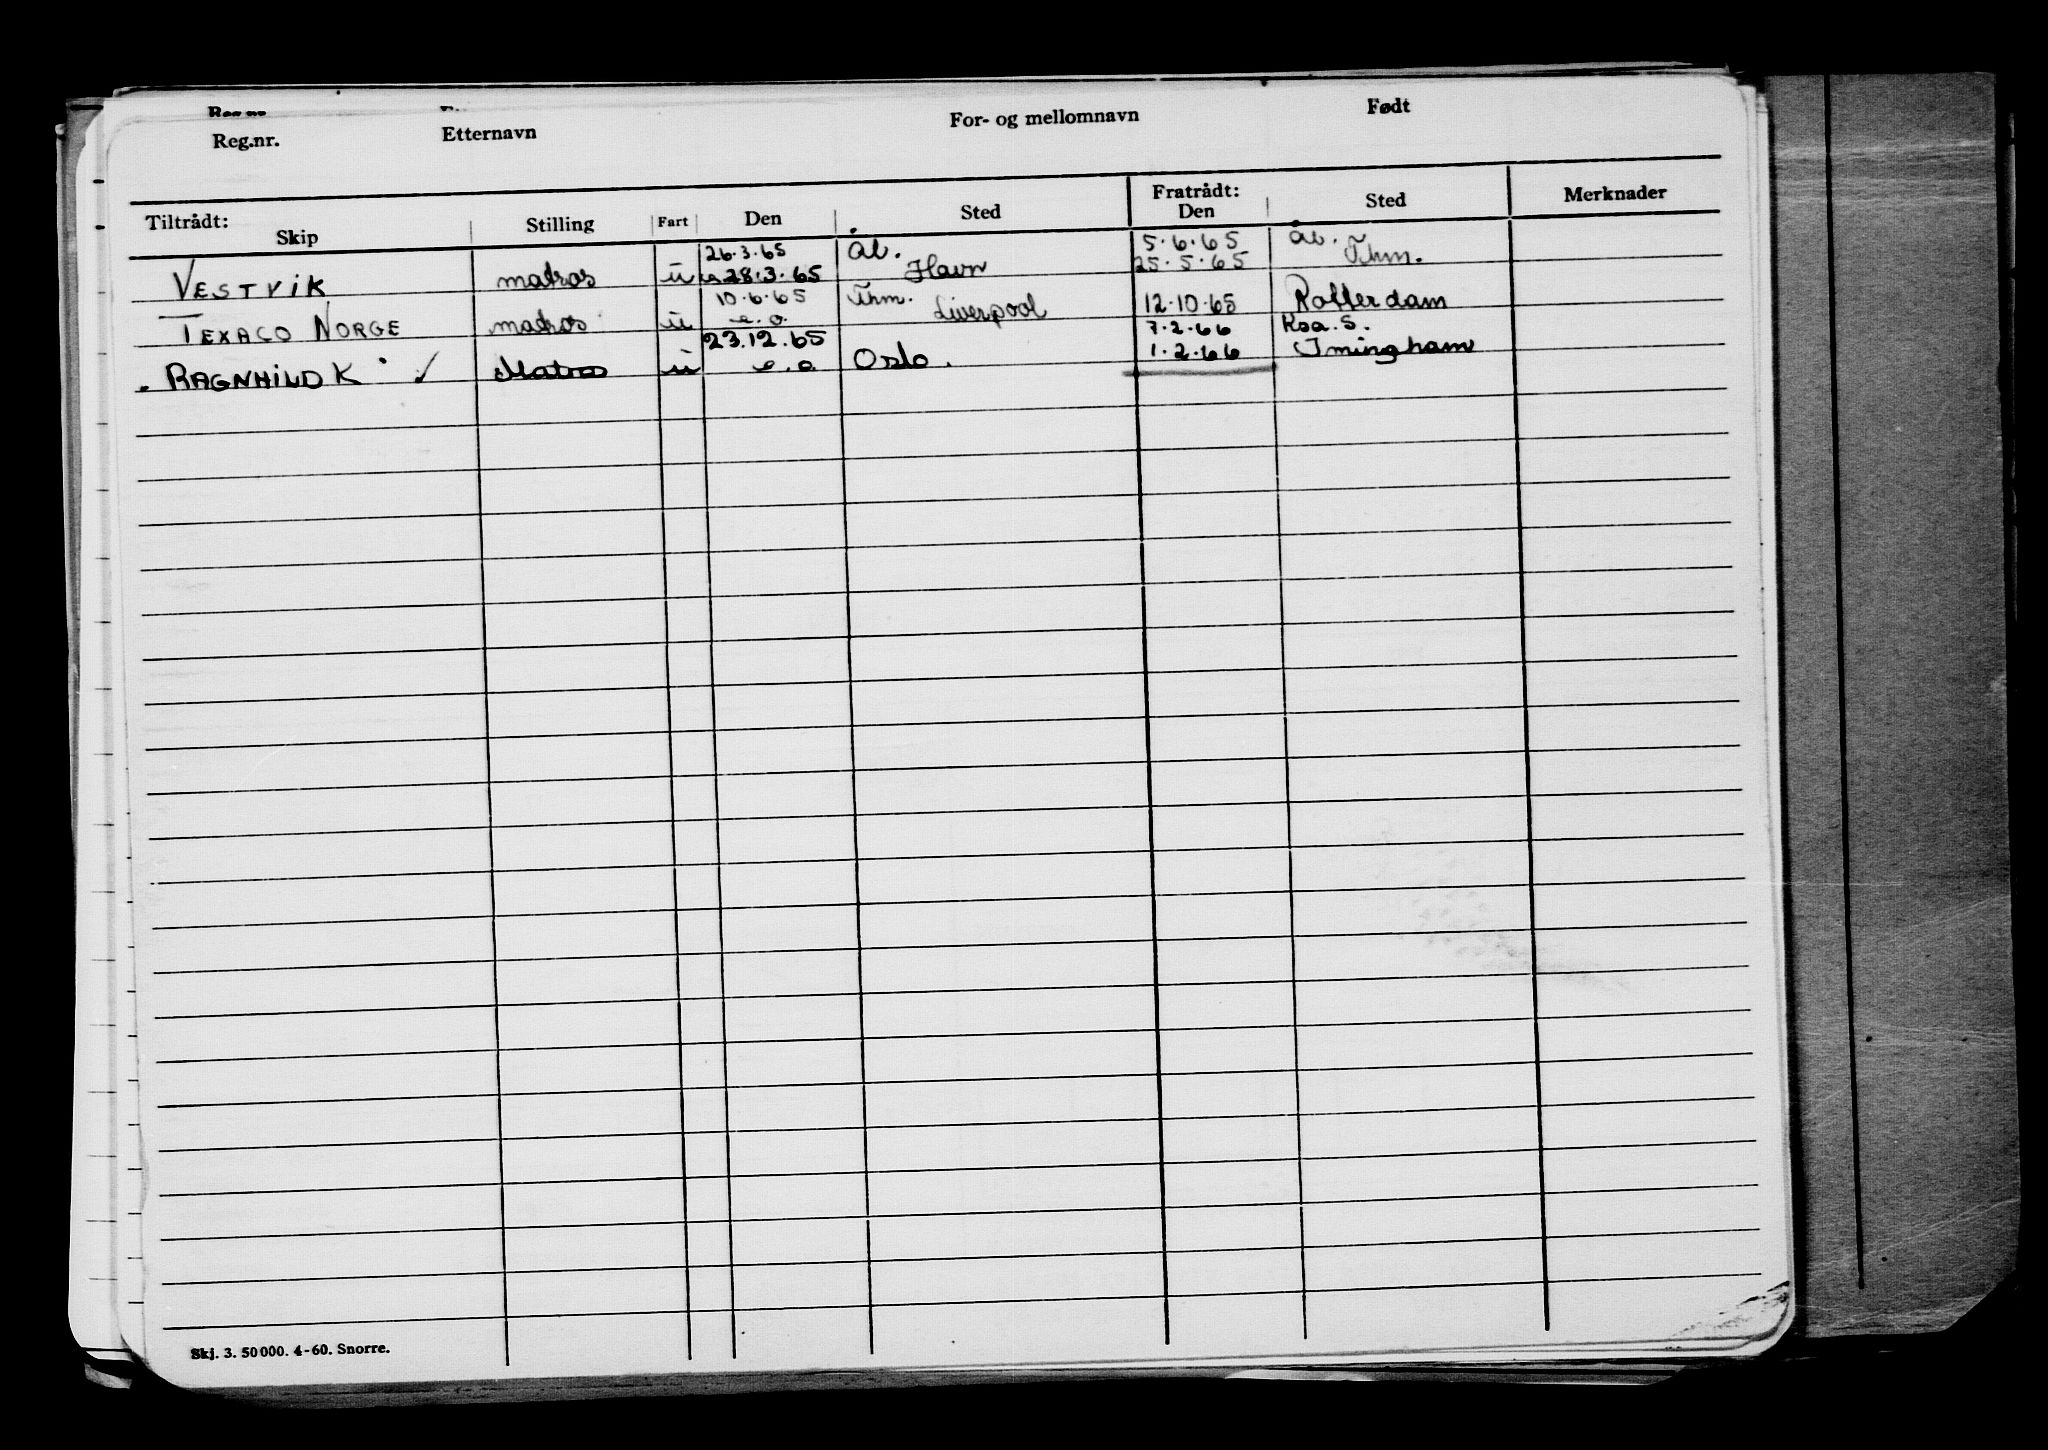 Reg.nr. Etternavn For- og mellomnavn Født
Tiltrådt: Fratrådt:
Skip Stilling Fart Den Sted Den Sted Merknader
26.3.65 Ål. 5.6.65 Ål.
VESTVIK matros u 28.3.65 Havn 25.5.65 Thm.
10.6.65 Thm.
TEXACO NORGE matros u e.o. Liverpool 12.10.65 Rotterdam
23.12.65 7.2.66 Koa.S.
RAGNHILD K ✓ Matros u e.o Oslo. 1.2.66 Imingham
Skj. 3. 50 000. 4-60. Snorre.